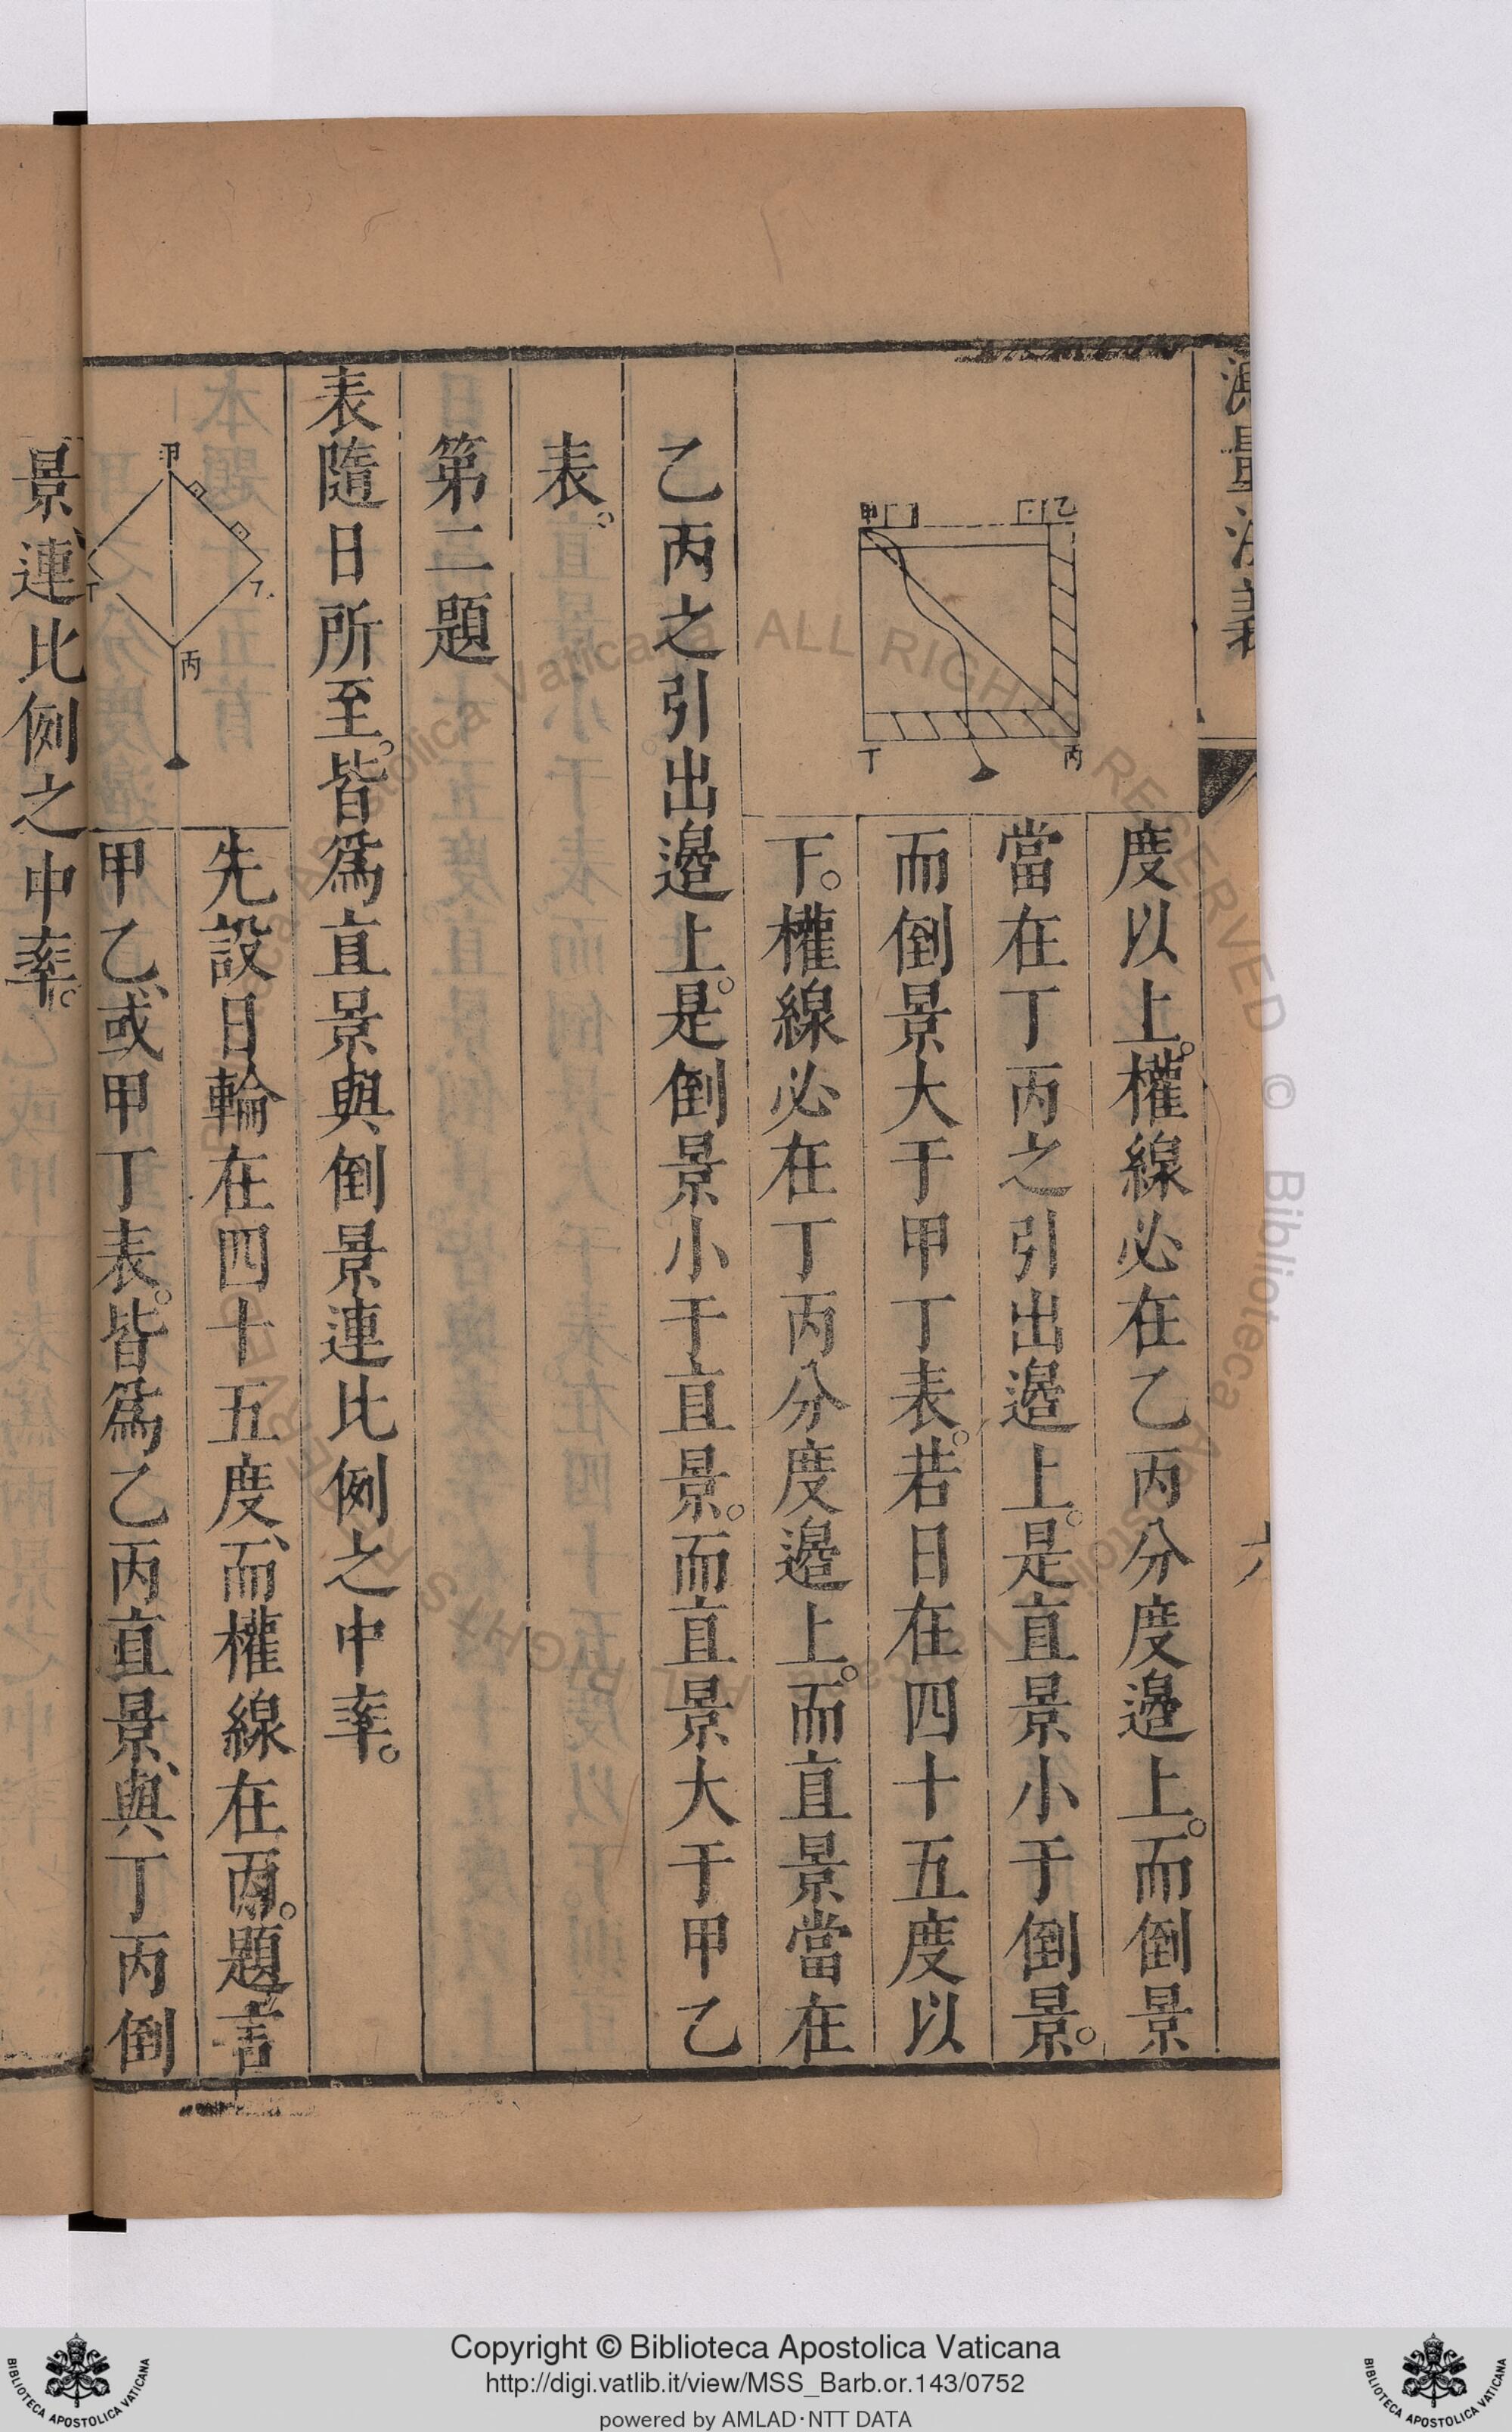 測量法義
六
甲
乙
丙
丁
度以上。權線必在乙丙分度邉上。而倒景
當在丁丙之引出邉上。是直景小于倒景。
而倒景大于甲丁表。若日在四十五度以
下。權線必在丁丙分度邉上。而直景當在
乙丙之引出邉上。是倒景小于直景。而直景大于甲乙
表。
第二題
表隨日所至。皆爲直景與倒景連比例之中率。
甲
丙
丁
先設日輪在四十五度、而權線在丙。題言
甲乙、或甲丁表。皆爲乙丙直景、與丁丙倒
景、連比例之中率。
Copyright © Biblioteca Apostolica Vaticana
http://digi.vatlib.it/view/MSS_Barb.or.143/0752
powered by AMLAD·NTT DATA
BIBLIOTECA APOSTOLICA VATICANA
BIBLIOTECA APOSTOLICA VATICANA